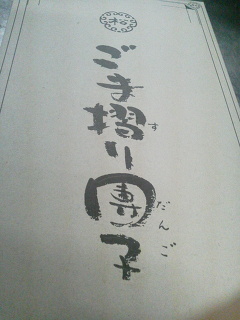 松
ごま摺り團子
す
だんご